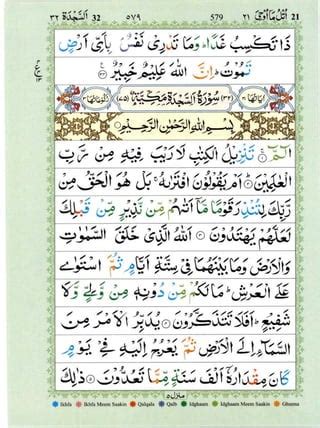 السجدة ٣٢ 32 ٥٧٩ 579 اتل ما اوحی ٢١ 21
ذَا تَكْسِبُ غَدًا ؕ وَمَا تَدْرِىْ نَفْسٌۢ بِاَىِّ اَرْضٍ
تَمُوْتُ ؕ اِنَّ اللّٰهَ عَلِيْمٌ خَبِيْرٌ
(٣٢) سُوْرَةُ السَّجْدَةِ مَكِّيَّةٌ (٧٥)
بِسْمِ اللّٰهِ الرَّحْمٰنِ الرَّحِيْمِ
الٓمّٓ ۚ تَنْزِيْلُ الْكِتٰبِ لَا رَيْبَ فِيْهِ مِنْ رَّبِّ
الْعٰلَمِيْنَ ؕ اَمْ يَقُوْلُوْنَ افْتَرٰىهُ ۚ بَلْ هُوَ الْحَقُّ مِنْ
رَّبِّكَ لِتُنْذِرَ قَوْمًا مَّاۤ اَتٰىهُمْ مِّنْ نَّذِيْرٍ مِّنْ قَبْلِكَ
لَعَلَّهُمْ يَهْتَدُوْنَ اَللّٰهُ الَّذِىْ خَلَقَ السَّمٰوٰتِ
وَالْاَرْضَ وَمَا بَيْنَهُمَا فِىْ سِتَّةِ اَيَّامٍ ثُمَّ اسْتَوٰى
عَلَى الْعَرْشِ ؕ مَا لَكُمْ مِّنْ دُوْنِهٖ مِنْ وَّلِىٍّ وَّلَا
شَفِيْعٍ ؕ اَفَلَا تَتَذَكَّرُوْنَ يُدَبِّرُ الْاَمْرَ مِنَ
السَّمَآءِ اِلَى الْاَرْضِ ثُمَّ يَعْرُجُ اِلَيْهِ فِىْ يَوْمٍ
كَانَ مِقْدَارُهٗۤ اَلْفَ سَنَةٍ مِّمَّا تَعُدُّوْنَ ذٰلِكَ
منزل ٥
Ikhfa Ikhfa Meem Saakin Qalqala Qalb Idghaam Idghaam Meem Saakin Ghunna